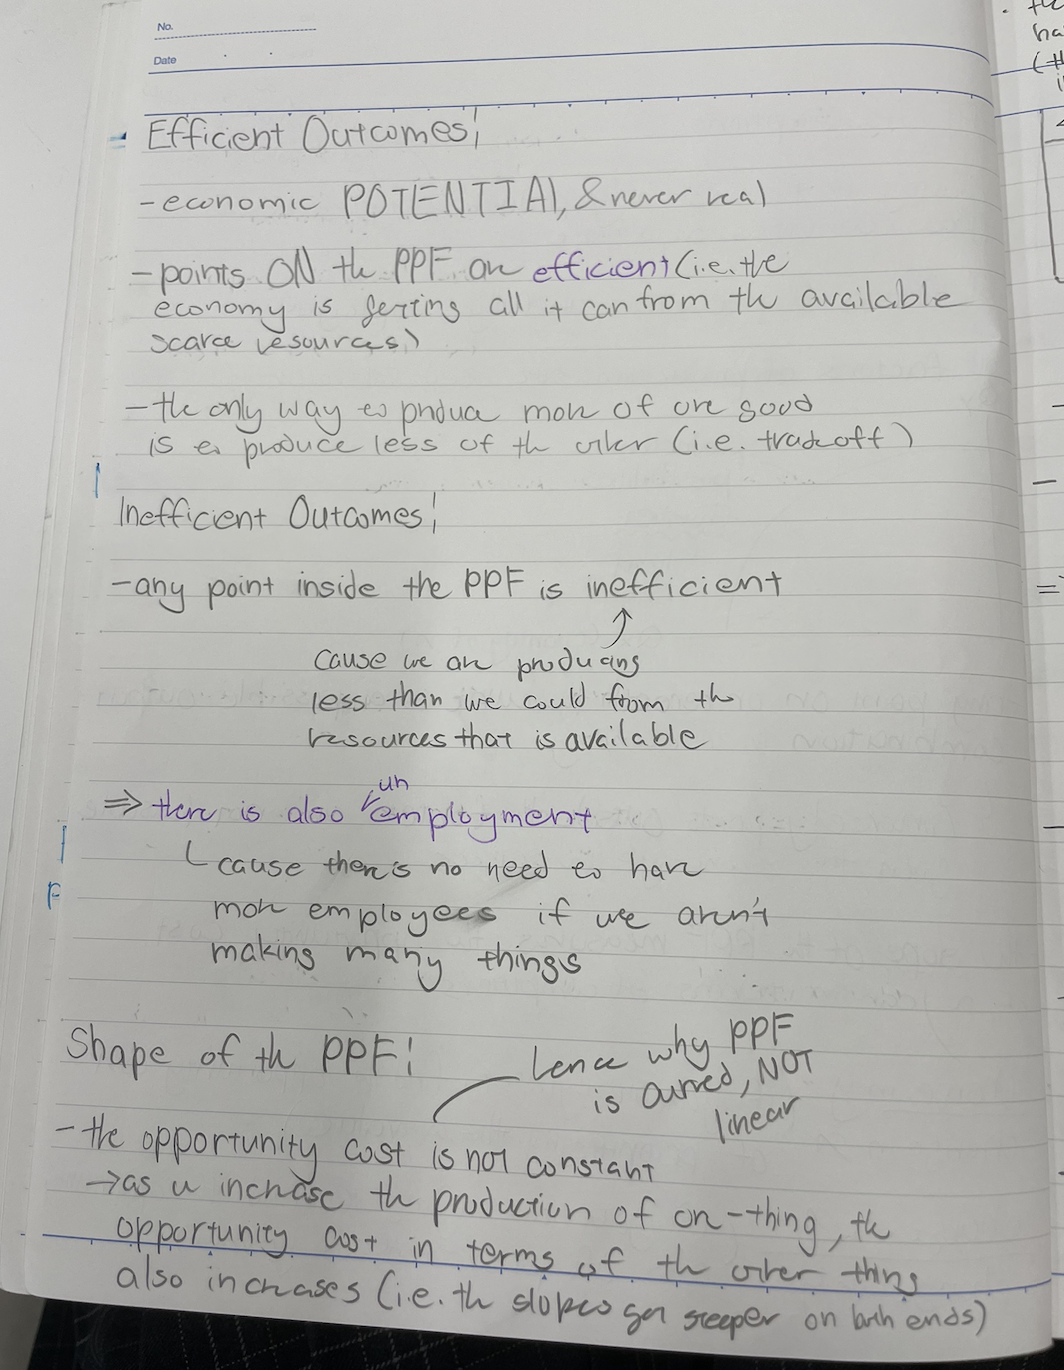 No.
Date
Efficient Outcomes:
- economic POTENTIAL, & never real
- points ON the PPF are efficient (i.e. the
economy is getting all it can from the available
scarce resources)
- the only way to produce more of one good
is to produce less of the other (i.e. tradeoff)
Inefficient Outcomes:
- any point inside the PPF is inefficient
cause we are producing
less than we could from the
resources that is available
un
⇒ there is also employment
cause there's no need to have
more employees if we aren't
making many things
Shape of the PPF:
hence why PPF
is curved, NOT
linear
- the opportunity cost is not constant
→ as u increase the production of one-thing, the
opportunity cost in terms of the other thing
also increases (i.e. the slopes get steeper on both ends)